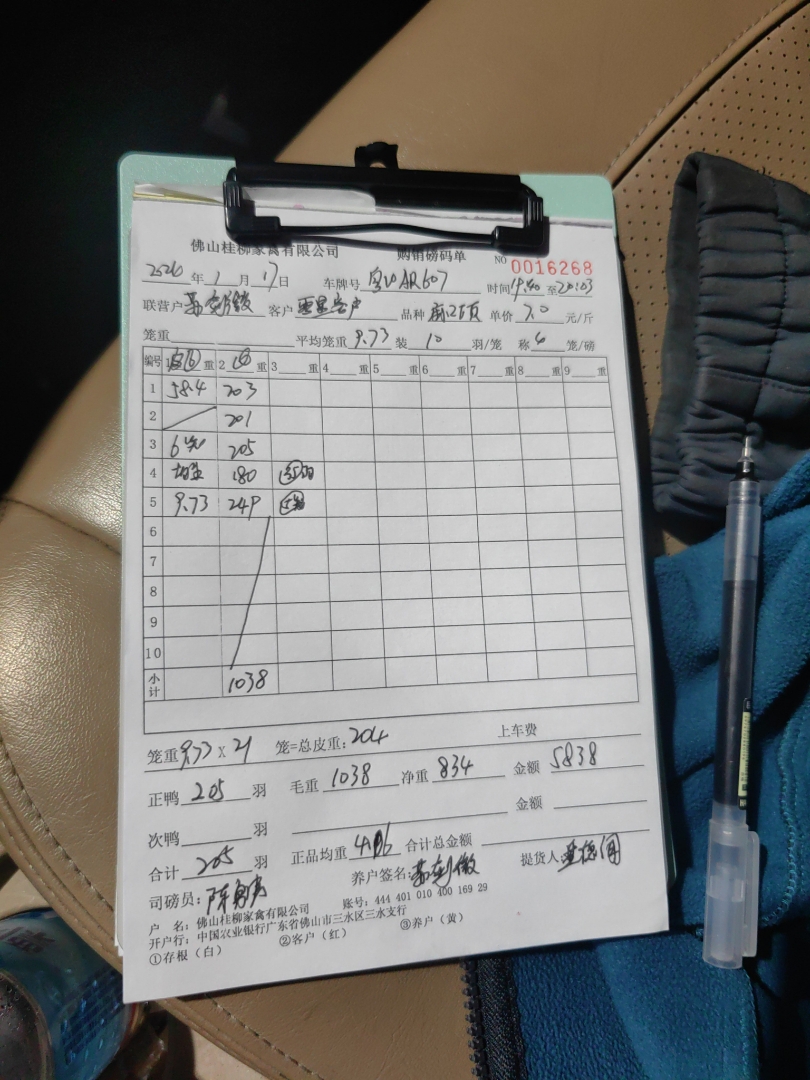 佛山桂柳家禽有限公司 购销磅码单 NO 0016268
2026年1月17日 车牌号 AR607 时间19:40至20:03
联营户 客户 品种 单价 7.0 元/斤
笼重 平均笼重 9.73 装 10 羽/笼 称 6 笼/磅
编号 1 重 2 重 3 重 4 重 5 重 6 重 7 重 8 重 9 重
1 58.4 203
2 201
3 6 205
4 180
5 9.73 249
6
7
8
9
10
小计 1038
笼重 9.73 X 21 笼=总皮重: 204 上车费
正鸭 205 羽 毛重 1038 净重 834 金额 5838
次鸭 羽 金额
合计 205 羽 正品均重 合计总金额
司磅员: 养户签名: 提货人
户 名: 佛山桂柳家禽有限公司 账号: 444 401 010 400 169 29
开户行: 中国农业银行广东省佛山市三水区三水支行
①存根（白） ②客户（红） ③养户（黄）